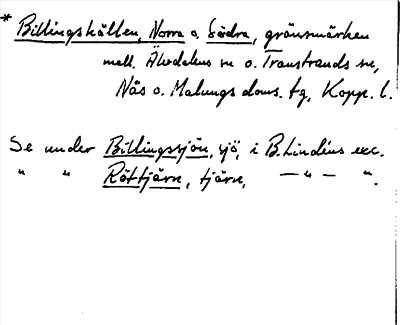 * Billingskällen, Norra o. Södra, gränsmärken
mell. Älvdalens sn o. Transtrands sn,
Nås o. Malungs doms. tg, Kopp. l.
Se under Billingssjön, sjö, i B. Lindéns exc.
" " Röttjärn, tjärn, — " — ".